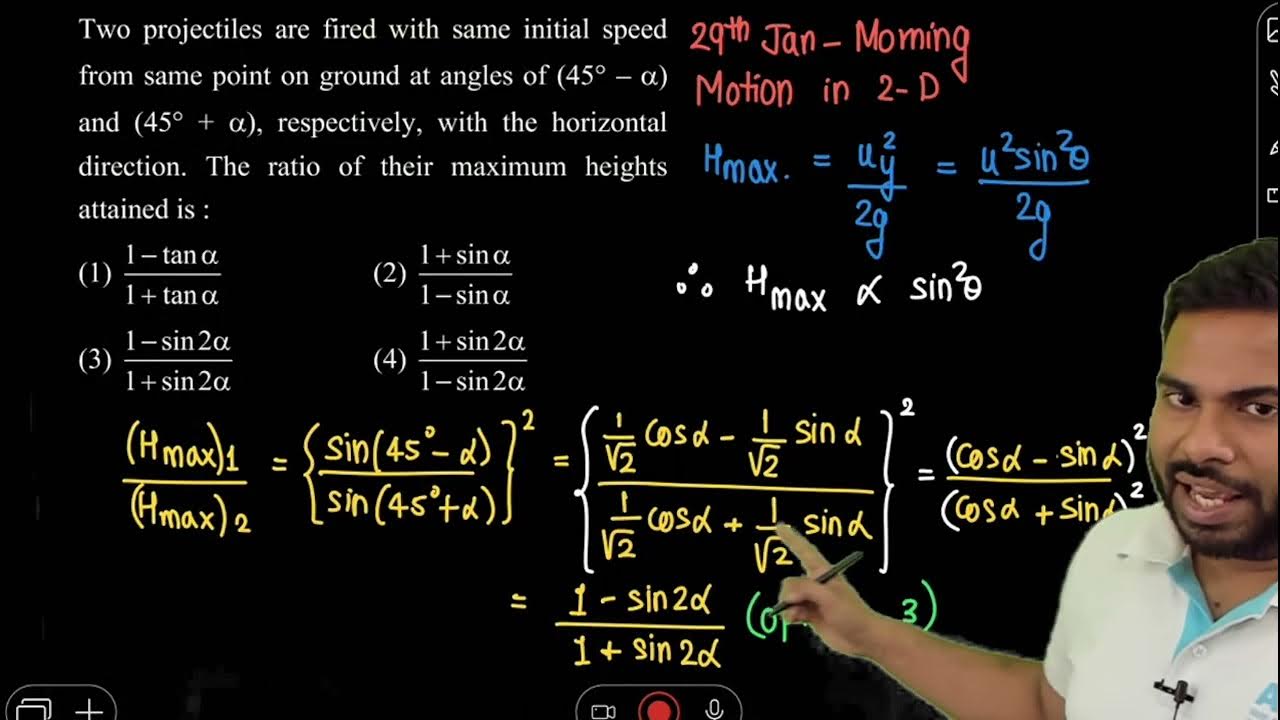 Two projectiles are fired with same initial speed
from same point on ground at angles of (45° – α)
and (45° + α), respectively, with the horizontal
direction. The ratio of their maximum heights
attained is :
(1) (1 − tan α)/(1 + tan α) (2) (1 + sin α)/(1 − sin α)
(3) (1 − sin 2α)/(1 + sin 2α) (4) (1 + sin 2α)/(1 − sin 2α)
29th Jan – Morning
Motion in 2-D
Hmax. = u_y²/2g = u²sin²θ/2g
∴ Hmax α sin²θ
(Hmax)1/(Hmax)2 = {sin(45° − α)/sin(45° + α)}² = {(1/√2 cosα − 1/√2 sinα)/(1/√2 cosα + 1/√2 sinα)}² = (cosα − sinα)²/(cosα + sinα)²
= (1 − sin2α)/(1 + sin2α) ( 3)